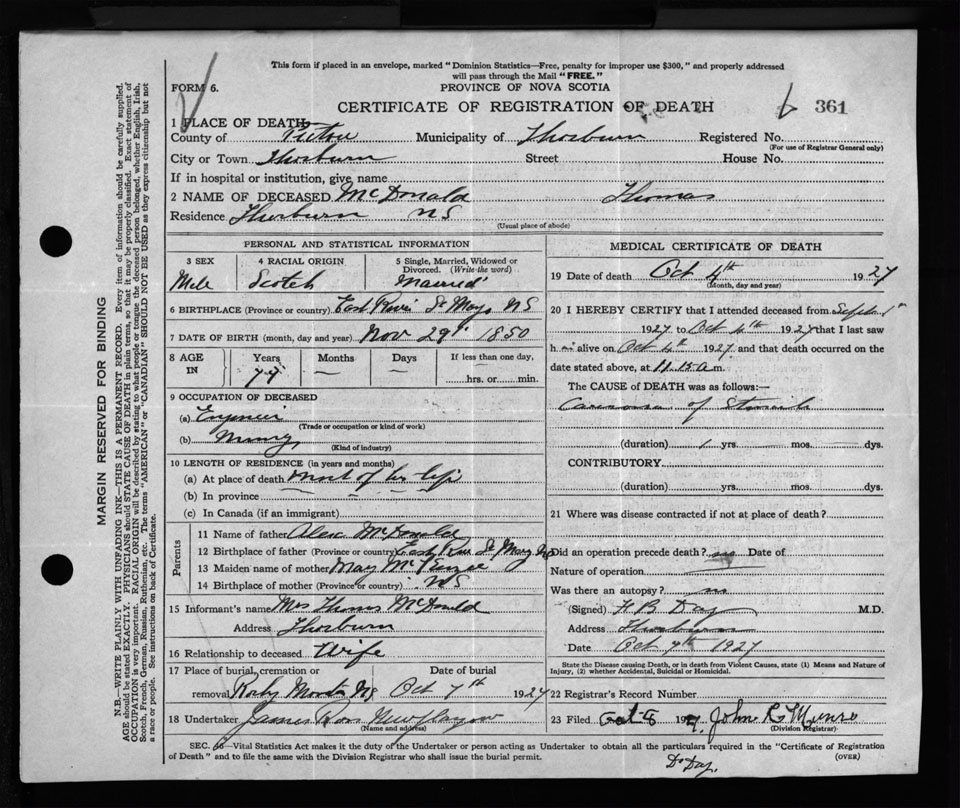 This form if placed in an envelope, marked "Dominion Statistics—Free, penalty for improper use $300," and properly addressed
will pass through the Mail "FREE."
FORM 6.
PROVINCE OF NOVA SCOTIA
CERTIFICATE OF REGISTRATION OF DEATH
6 361
1 PLACE OF DEATH
County of Pictou Municipality of Thorburn Registered No.
(For use of Registrar General only)
City or Town Thorburn Street House No.
If in hospital or institution, give name
2 NAME OF DECEASED McDonald Thomas
Residence Thorburn NS
(Usual place of abode)
PERSONAL AND STATISTICAL INFORMATION
3 SEX 4 RACIAL ORIGIN 5 Single, Married, Widowed or Divorced. (Write the word)
Male Scotch Married
6 BIRTHPLACE (Province or country) East River St Marys NS
7 DATE OF BIRTH (month, day and year) Nov 29 1850
8 AGE IN Years Months Days If less than one day,
77 — — hrs. or min.
9 OCCUPATION OF DECEASED
(a) Engineer
(Trade or occupation or kind of work)
(b) Mining
(Kind of industry)
10 LENGTH OF RESIDENCE (in years and months)
(a) At place of death most of his life
(b) In province
(c) In Canada (if an immigrant)
Parents
11 Name of father Alex McDonald
12 Birthplace of father (Province or country) East River St Marys NS
13 Maiden name of mother Mary McKenzie
14 Birthplace of mother (Province or country) NS
15 Informant's name Mrs Thomas McDonald
Address Thorburn
16 Relationship to deceased Wife
17 Place of burial, cremation or Date of burial
removal Mountn NS Oct 7th 1927
18 Undertaker James Ross New Glasgow
(Name and address)
MEDICAL CERTIFICATE OF DEATH
19 Date of death Oct 4th 1927
(Month, day and year)
20 I HEREBY CERTIFY that I attended deceased from Sept 1st
1927 to Oct 4th 1927 that I last saw
him alive on Oct 4th 1927 and that death occurred on the
date stated above, at 11.15 a.m.
The CAUSE of DEATH was as follows:—
Carcinoma of Stomach
(duration) 1 yrs. mos. dys.
CONTRIBUTORY
(duration) yrs. mos. dys.
21 Where was disease contracted if not at place of death?
Did an operation precede death? no Date of
Nature of operation
Was there an autopsy? no
(Signed) H B Day M.D.
Address Thorburn
Date Oct 7th 1927
State the Disease causing Death, or in death from Violent Causes, state (1) Means and Nature of
Injury, (2) whether Accidental, Suicidal or Homicidal.
22 Registrar's Record Number
23 Filed Oct 8 1927. John R Munro
(Division Registrar)
SEC. 16—Vital Statistics Act makes it the duty of the Undertaker or person acting as Undertaker to obtain all the particulars required in the "Certificate of Registration
of Death" and to file the same with the Division Registrar who shall issue the burial permit. (OVER)
Dr Day.
MARGIN RESERVED FOR BINDING
N.B.—WRITE PLAINLY WITH UNFADING INK—THIS IS A PERMANENT RECORD. Every item of information should be carefully supplied.
AGE should be stated EXACTLY. PHYSICIANS should STATE CAUSE OF DEATH in plain terms, so that it may be properly classified. Exact statement of
OCCUPATION is very important. RACIAL ORIGIN will be described by stating to what people or tongue the deceased person belonged, whether English, Irish,
Scotch, French, German, Russian, Ruthenian, etc. The terms "AMERICAN" or "CANADIAN" SHOULD NOT BE USED as they express citizenship but not
a race or people. See instructions on back of Certificate.